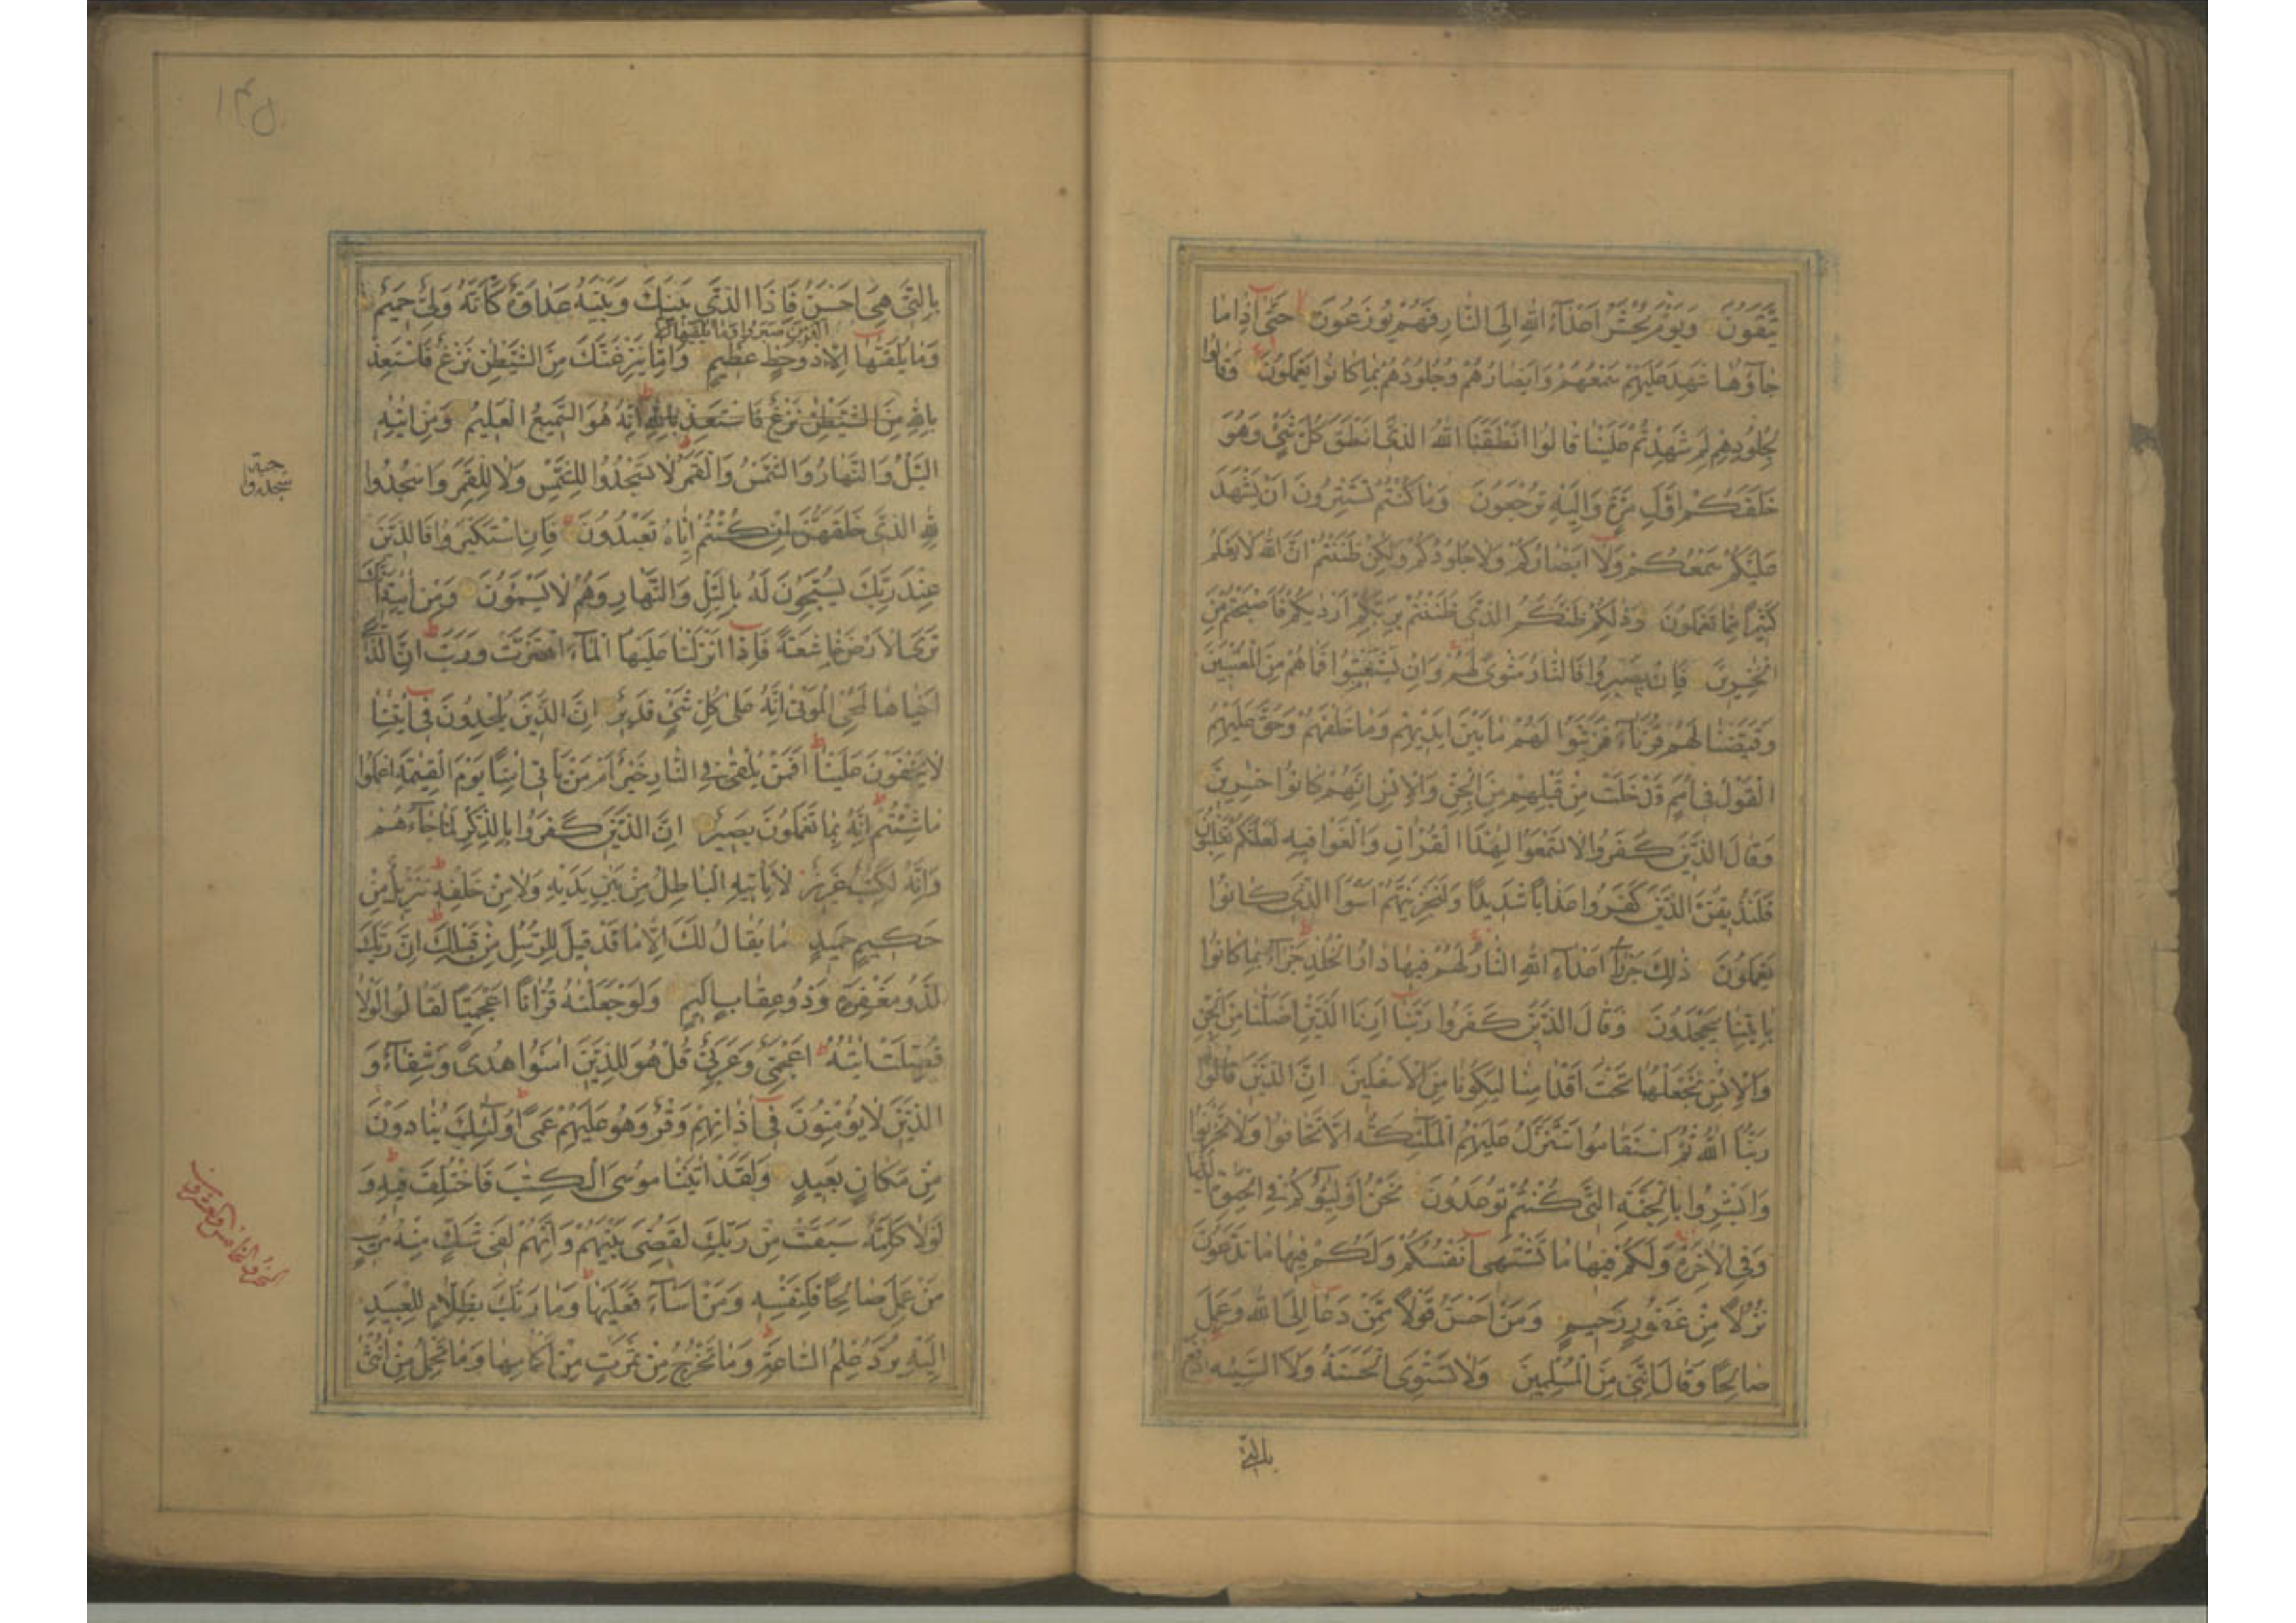 يَتَّقُونَ وَيَوْمَ يُحْشَرُ أَعْدَآءُ اللهِ إِلَى النَّارِ فَهُمْ يُوزَعُونَ حَتَّى إِذَا مَا
جَآؤُهَا شَهِدَ عَلَيْهِمْ سَمْعُهُمْ وَأَبْصَارُهُمْ وَجُلُودُهُمْ بِمَا كَانُوا يَعْمَلُونَ وَقَالُوا
لِجُلُودِهِمْ لِمَ شَهِدْتُمْ عَلَيْنَا قَالُوا أَنْطَقَنَا اللهُ الَّذِى أَنْطَقَ كُلَّ شَىْءٍ وَهُوَ
خَلَقَكُمْ أَوَّلَ مَرَّةٍ وَإِلَيْهِ تُرْجَعُونَ وَمَا كُنْتُمْ تَسْتَتِرُونَ أَنْ يَشْهَدَ
عَلَيْكُمْ سَمْعُكُمْ وَلَا أَبْصَارُكُمْ وَلَا جُلُودُكُمْ وَلٰكِنْ ظَنَنْتُمْ أَنَّ اللهَ لَا يَعْلَمُ
كَثِيرًا مِمَّا تَعْمَلُونَ وَذٰلِكُمْ ظَنُّكُمُ الَّذِى ظَنَنْتُمْ بِرَبِّكُمْ أَرْدٰيكُمْ فَأَصْبَحْتُمْ مِنَ
الْخٰسِرِينَ فَإِنْ يَصْبِرُوا فَالنَّارُ مَثْوًى لَهُمْ وَإِنْ يَسْتَعْتِبُوا فَمَا هُمْ مِنَ الْمُعْتَبِينَ
وَقَيَّضْنَا لَهُمْ قُرَنَآءَ فَزَيَّنُوا لَهُمْ مَا بَيْنَ أَيْدِيهِمْ وَمَا خَلْفَهُمْ وَحَقَّ عَلَيْهِمُ
الْقَوْلُ فِى أُمَمٍ قَدْ خَلَتْ مِنْ قَبْلِهِمْ مِنَ الْجِنِّ وَالْإِنْسِ إِنَّهُمْ كَانُوا خٰسِرِينَ
وَقَالَ الَّذِينَ كَفَرُوا لَا تَسْمَعُوا لِهٰذَا الْقُرْاٰنِ وَالْغَوْا فِيهِ لَعَلَّكُمْ تَغْلِبُونَ
فَلَنُذِيقَنَّ الَّذِينَ كَفَرُوا عَذَابًا شَدِيدًا وَلَنَجْزِيَنَّهُمْ أَسْوَأَ الَّذِى كَانُوا
يَعْمَلُونَ ذٰلِكَ جَزَآءُ أَعْدَآءِ اللهِ النَّارُ لَهُمْ فِيهَا دَارُ الْخُلْدِ جَزَآءً بِمَا كَانُوا
بِاٰيٰتِنَا يَجْحَدُونَ وَقَالَ الَّذِينَ كَفَرُوا رَبَّنَا أَرِنَا الَّذَيْنِ أَضَلَّانَا مِنَ الْجِنِّ
وَالْإِنْسِ نَجْعَلْهُمَا تَحْتَ أَقْدَامِنَا لِيَكُونَا مِنَ الْأَسْفَلِينَ إِنَّ الَّذِينَ قَالُوا
رَبُّنَا اللهُ ثُمَّ اسْتَقَامُوا تَتَنَزَّلُ عَلَيْهِمُ الْمَلٰٓئِكَةُ أَلَّا تَخَافُوا وَلَا تَحْزَنُوا
وَأَبْشِرُوا بِالْجَنَّةِ الَّتِى كُنْتُمْ تُوعَدُونَ نَحْنُ أَوْلِيٰٓؤُكُمْ فِى الْحَيٰوةِ الدُّنْيَا
وَفِى الْاٰخِرَةِ وَلَكُمْ فِيهَا مَا تَشْتَهِى أَنْفُسُكُمْ وَلَكُمْ فِيهَا مَا تَدَّعُونَ
نُزُلًا مِنْ غَفُورٍ رَحِيمٍ وَمَنْ أَحْسَنُ قَوْلًا مِمَّنْ دَعَا إِلَى اللهِ وَعَمِلَ
صَالِحًا وَقَالَ إِنَّنِى مِنَ الْمُسْلِمِينَ وَلَا تَسْتَوِى الْحَسَنَةُ وَلَا السَّيِّئَةُ ادْفَعْ
بالتى
١٤٥
بِالَّتِى هِىَ أَحْسَنُ فَإِذَا الَّذِى بَيْنَكَ وَبَيْنَهُ عَدَاوَةٌ كَأَنَّهُ وَلِىٌّ حَمِيمٌ
الَّذِينَ صَبَرُوا وَمَا يُلَقّٰىهَا
وَمَا يُلَقّٰىهَا إِلَّا ذُو حَظٍّ عَظِيمٍ وَإِمَّا يَنْزَغَنَّكَ مِنَ الشَّيْطٰنِ نَزْغٌ فَاسْتَعِذْ
بِاللهِ مِنَ الشَّيْطٰنِ نَزْغٌ فَاسْتَعِذْ بِاللهِ إِنَّهُ هُوَ السَّمِيعُ الْعَلِيمُ وَمِنْ اٰيٰتِهِ
الَّيْلُ وَالنَّهَارُ وَالشَّمْسُ وَالْقَمَرُ لَا تَسْجُدُوا لِلشَّمْسِ وَلَا لِلْقَمَرِ وَاسْجُدُوا
لِلّٰهِ الَّذِى خَلَقَهُنَّ إِنْ كُنْتُمْ إِيَّاهُ تَعْبُدُونَ فَإِنِ اسْتَكْبَرُوا فَالَّذِينَ
عِنْدَ رَبِّكَ يُسَبِّحُونَ لَهُ بِالَّيْلِ وَالنَّهَارِ وَهُمْ لَا يَسْئَمُونَ وَمِنْ اٰيٰتِهِ أَنَّكَ
تَرَى الْأَرْضَ خَاشِعَةً فَإِذَا أَنْزَلْنَا عَلَيْهَا الْمَآءَ اهْتَزَّتْ وَرَبَتْ إِنَّ الَّذِى
أَحْيَاهَا لَمُحْىِ الْمَوْتٰى إِنَّهُ عَلٰى كُلِّ شَىْءٍ قَدِيرٌ إِنَّ الَّذِينَ يُلْحِدُونَ فِى اٰيٰتِنَا
لَا يَخْفَوْنَ عَلَيْنَا أَفَمَنْ يُلْقٰى فِى النَّارِ خَيْرٌ أَمْ مَنْ يَأْتِى اٰمِنًا يَوْمَ الْقِيٰمَةِ اعْمَلُوا
مَا شِئْتُمْ إِنَّهُ بِمَا تَعْمَلُونَ بَصِيرٌ إِنَّ الَّذِينَ كَفَرُوا بِالذِّكْرِ لَمَّا جَآءَهُمْ
وَإِنَّهُ لَكِتٰبٌ عَزِيزٌ لَا يَأْتِيهِ الْبَاطِلُ مِنْ بَيْنِ يَدَيْهِ وَلَا مِنْ خَلْفِهِ تَنْزِيلٌ مِنْ
حَكِيمٍ حَمِيدٍ مَا يُقَالُ لَكَ إِلَّا مَا قَدْ قِيلَ لِلرُّسُلِ مِنْ قَبْلِكَ إِنَّ رَبَّكَ
لَذُو مَغْفِرَةٍ وَذُو عِقَابٍ أَلِيمٍ وَلَوْ جَعَلْنٰهُ قُرْاٰنًا أَعْجَمِيًّا لَقَالُوا لَوْلَا
فُصِّلَتْ اٰيٰتُهُ أَعْجَمِىٌّ وَعَرَبِىٌّ قُلْ هُوَ لِلَّذِينَ اٰمَنُوا هُدًى وَشِفَآءٌ وَ
الَّذِينَ لَا يُؤْمِنُونَ فِى اٰذَانِهِمْ وَقْرٌ وَهُوَ عَلَيْهِمْ عَمًى أُولٰٓئِكَ يُنَادَوْنَ
مِنْ مَكَانٍ بَعِيدٍ وَلَقَدْ اٰتَيْنَا مُوسَى الْكِتٰبَ فَاخْتُلِفَ فِيهِ وَ
لَوْلَا كَلِمَةٌ سَبَقَتْ مِنْ رَبِّكَ لَقُضِىَ بَيْنَهُمْ وَإِنَّهُمْ لَفِى شَكٍّ مِنْهُ مُرِيبٍ
مَنْ عَمِلَ صَالِحًا فَلِنَفْسِهِ وَمَنْ أَسَآءَ فَعَلَيْهَا وَمَا رَبُّكَ بِظَلَّامٍ لِلْعَبِيدِ
إِلَيْهِ يُرَدُّ عِلْمُ السَّاعَةِ وَمَا تَخْرُجُ مِنْ ثَمَرٰتٍ مِنْ أَكْمَامِهَا وَمَا تَحْمِلُ مِنْ أُنْثٰى
الجزو الخامس والعشرون